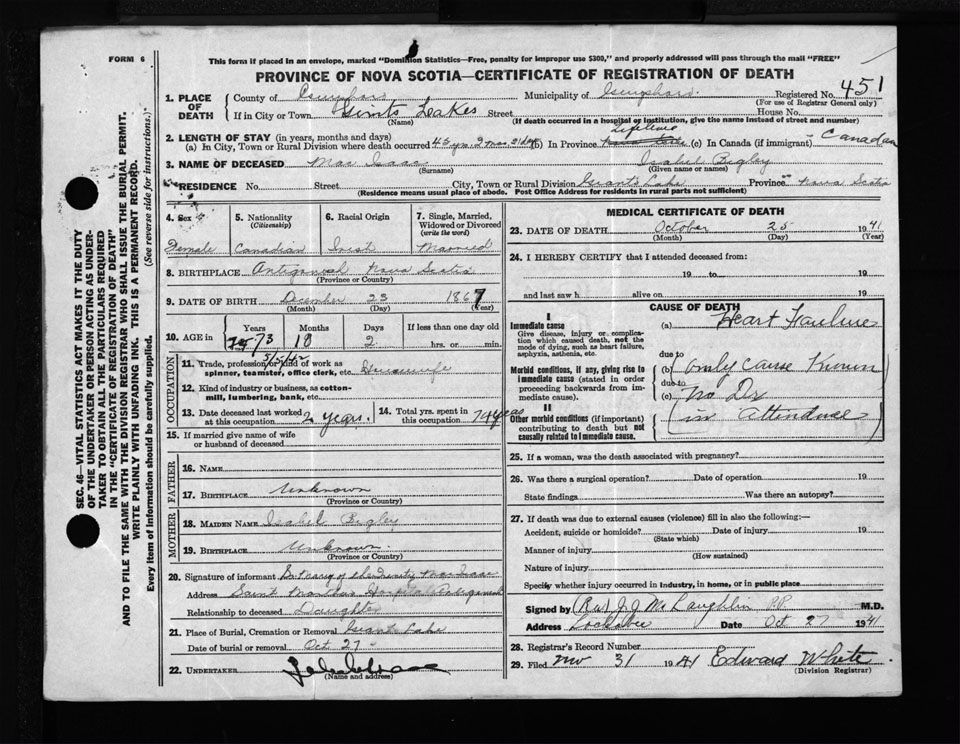 FORM 6
This form if placed in an envelope, marked "Dominion Statistics—Free, penalty for improper use $300," and properly addressed will pass through the mail "FREE"
PROVINCE OF NOVA SCOTIA—CERTIFICATE OF REGISTRATION OF DEATH
Registered No. 451
(For use of Registrar General only)
1. PLACE OF DEATH
County of
Municipality of
If in City or Town Lakes Street House No.
(Name) (If death occurred in a hospital or institution, give the name instead of street and number)
2. LENGTH OF STAY (in years, months and days)
(a) In City, Town or Rural Division where death occurred (b) In Province Lifetime (c) In Canada (if immigrant) Canadian
3. NAME OF DECEASED Mac Isaac Isabel Bigley
(Surname) (Given name or names)
RESIDENCE No. Street City, Town or Rural Division Giants Lake Province Nova Scotia
(Residence means usual place of abode. Post Office Address for residents in rural parts not sufficient)
4. Sex Female
5. Nationality (Citizenship) Canadian
6. Racial Origin Irish
7. Single, Married, Widowed or Divorced (write the word) Married
8. BIRTHPLACE Antigonish Nova Scotia
(Province or Country)
9. DATE OF BIRTH December 23 1867
(Month) (Day) (Year)
10. AGE in Years Months Days If less than one day old
73 10 2 hrs. or min.
OCCUPATION
11. Trade, profession or kind of work as spinner, teamster, office clerk, etc. Housewife
12. Kind of industry or business, as cotton-mill, lumbering, bank, etc.
13. Date deceased last worked at this occupation 2 years.
14. Total yrs. spent in this occupation
15. If married give name of wife or husband of deceased
FATHER
16. NAME
17. BIRTHPLACE Unknown
(Province or Country)
MOTHER
18. MAIDEN NAME Isabel Bigley
19. BIRTHPLACE Unknown.
(Province or Country)
20. Signature of informant
Address Saint Martha's Hospital Antigonish
Relationship to deceased Daughter
21. Place of Burial, Cremation or Removal Giants Lake
Date of burial or removal Oct 27
22. UNDERTAKER
(Name and address)
MEDICAL CERTIFICATE OF DEATH
23. DATE OF DEATH October 25 1941
(Month) (Day) (Year)
24. I HEREBY CERTIFY that I attended deceased from:
19 to 19
and last saw h alive on 19
CAUSE OF DEATH
I
Immediate cause
Give disease, injury or complication which caused death, not the mode of dying, such as heart failure, asphyxia, asthenia, etc.
(a) Heart Faulure
Morbid conditions, if any, giving rise to immediate cause (stated in order proceeding backwards from immediate cause).
due to
(b) only cause Known
due to
(c) No Dr
II
Other morbid conditions (if important) contributing to death but not causally related to immediate cause.
in attendance
25. If a woman, was the death associated with pregnancy?
26. Was there a surgical operation? Date of operation 19
State findings Was there an autopsy?
27. If death was due to external causes (violence) fill in also the following:—
Accident, suicide or homicide? Date of injury 19
(State which)
Manner of injury
(How sustained)
Nature of injury
Specify whether injury occurred in industry, in home, or in public place
Signed by (Rev) J. J. McLaughlin P.P. M.D.
Address Lochaber Date Oct 27 1941
28. Registrar's Record Number
29. Filed Nov 31 1941 Edward White
(Division Registrar)
SEC. 46—VITAL STATISTICS ACT MAKES IT THE DUTY
OF THE UNDERTAKER OR PERSON ACTING AS UNDER-
TAKER TO OBTAIN ALL THE PARTICULARS REQUIRED
IN THE "CERTIFICATE OF REGISTRATION OF DEATH"
AND TO FILE THE SAME WITH THE DIVISION REGISTRAR WHO SHALL ISSUE THE BURIAL PERMIT.
WRITE PLAINLY WITH UNFADING INK. THIS IS A PERMANENT RECORD.
Every item of information should be carefully supplied. (See reverse side for instructions.)